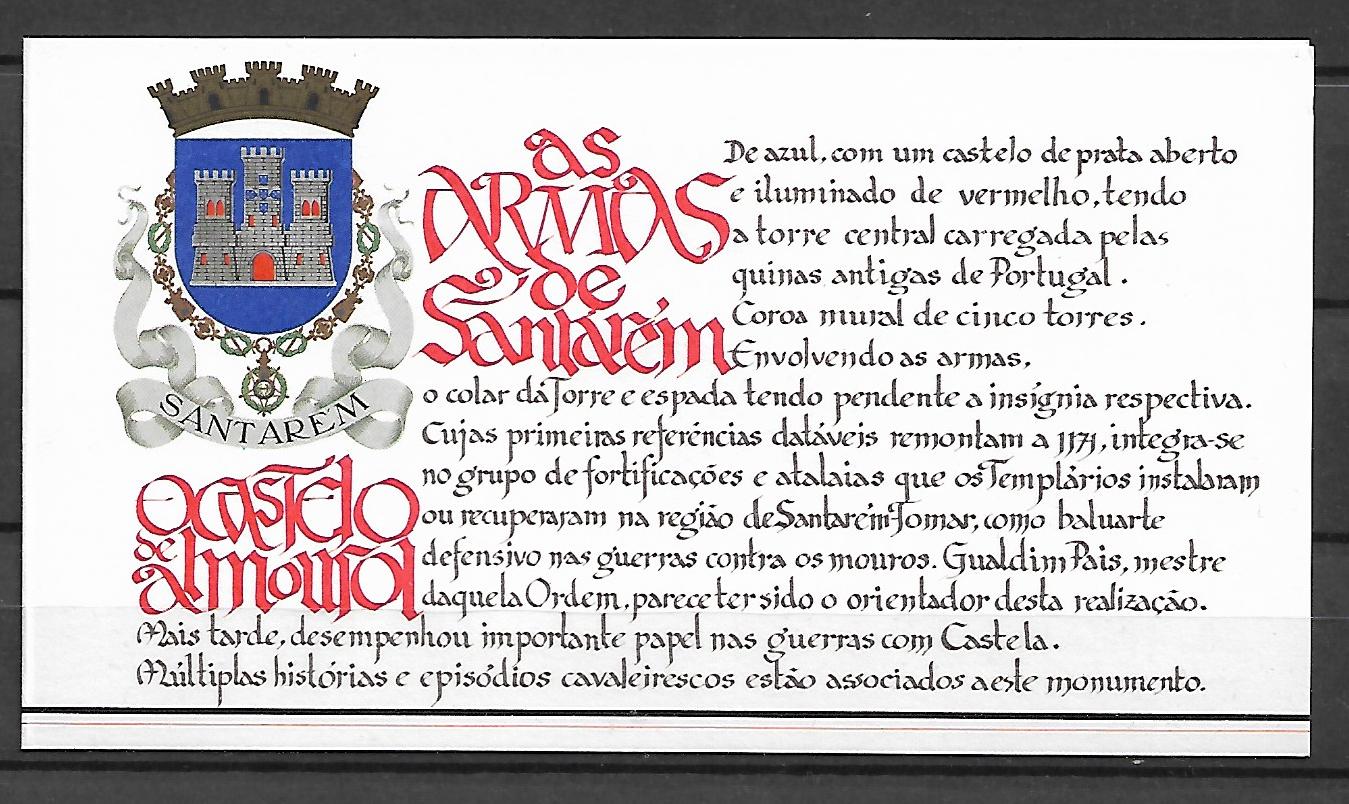 SANTARÉM
as
ARMAS
de
Santarém
De azul, com um castelo de prata aberto
e iluminado de vermelho, tendo
a torre central carregada pelas
quinas antigas de Portugal.
Coroa mural de cinco torres.
Envolvendo as armas,
o colar da Torre e espada tendo pendente a insígnia respectiva.
O CASTELO
de
almourol
Cujas primeiras referências datáveis remontam a 1171, integra-se
no grupo de fortificações e atalaias que os Templários instalaram
ou recuperaram na região de Santarém-Tomar, como baluarte
defensivo nas guerras contra os mouros. Gualdim Pais, mestre
daquela Ordem, parece ter sido o orientador desta realização.
Mais tarde, desempenhou importante papel nas guerras com Castela.
Múltiplas histórias e episódios cavaleirescos estão associados a este monumento.